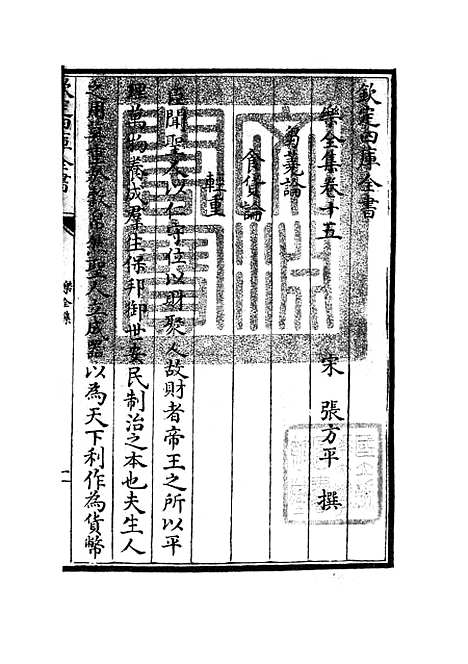 欽定四庫全書
樂全集卷十五
宋 張方平 撰
芻蕘論
食貨論
輕重
臣聞聖人以仁守位以財聚人故財者帝王之所以平
理萬物養成羣生保邦御世安民制治之本也夫生人
之用莫重 聖人立成器以為天下利作為貨幣
欽定四庫全書
樂全集
一